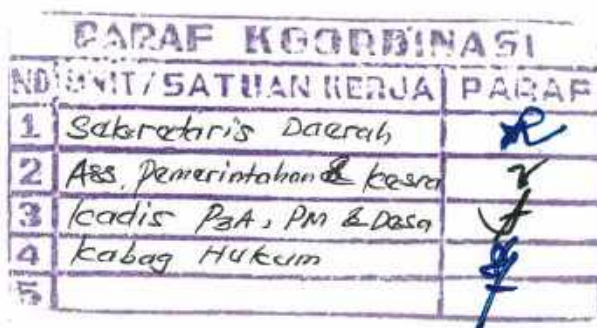 PARAF KOORDINASI
NO UNIT/SATUAN KERJA PARAF
1 Sekretaris Daerah
2 Ass. Pemerintahan & kesra
3 kadis P3A, PM & Desa
4 Kabag Hukum
5